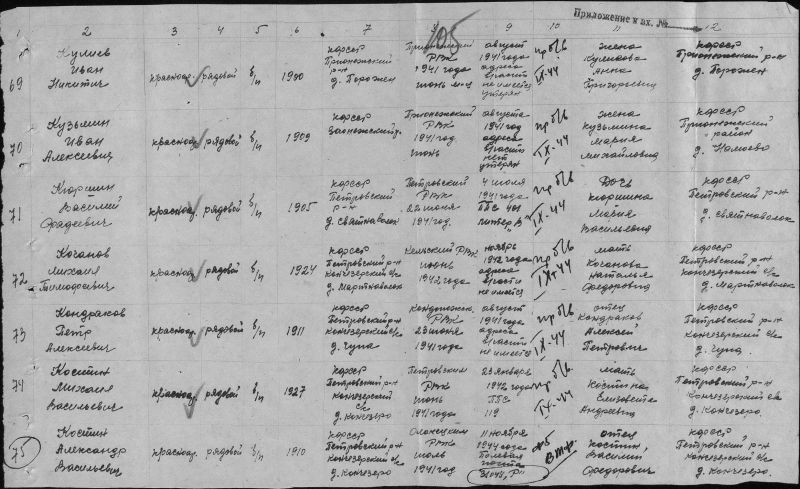 Приложение к вх. №
205
1 2 3 4 5 6 7 8 9 10 11 12
69 Кулиев Иван Никитич красноар. рядовой б/п 1900 КФССР Прионежский р-н д. Горожен Прионежский РВК 1941 года июнь м-ц август 1941 года адреса в/части не имеется утерян пр б/в IX-44 жена Анна Григорьевна КФССР Прионежский р-н д. Горожен
70 Кузьмин Иван Алексеевич красноар. рядовой б/п 1909 КФССР Заонежский р. Прионежский РВК 1941 год. июнь августа 1941 год адреса в/части нет утерян пр б/в IX-44 жена Кузьмина Мария Михайловна КФССР Прионежский район д.
71 Василий Фадеевич красноар. рядовой б/п 1905 КФССР Петровский р-н д. Святнаволок Петровский РВК 22 июня 1941 год. 4 июля 1941 года ППС 401 литер В пр б/в IX-44 дочь Мария Васильевна КФССР Петровский р-н д. Святнаволок
72 Коганов Михаил Тимофеевич красноар. рядовой б/п 1924 КФССР Петровский р-н Кончезерский с/с д. Мартнаволок Кемский РВК июнь 1942 года ноябрь 1942 года адреса в/части не имеется пр б/в IX-44 мать Коганова Наталья Федоровна КФССР Петровский р-н Кончезерский с/с д. Мартнаволок
73 Кондраков Петр Алексеевич красноар. рядовой б/п 1911 КФССР Петровский р-н Кончезерский с/с д. Чупа Кондопожск. РВК 23 июня 1941 года август 1941 года адреса в/части не имеется пр б/в IX-44 отец Кондраков Алексей Петрович КФССР Петровский р-н Кончезерский с/с д. Чупа.
74 Костин Михаил Васильевич красноар. рядовой б/п 1927 КФССР Петровский р-н Кончезерский с/с д. Кончезеро Петровским РВК июнь 1941 года 23 января 1942 года ППС 119 пр б/в IX-44 мать Костина Елизавета Андреевна КФССР Петровский р-н Кончезерский с/с д. Кончезеро.
75 Костин Александр Васильевич красноар. рядовой б/п 1910 КФССР Петровский р-н Кончезерский с/с д. Кончезеро Олонецким РВК июль 1941 год 11 ноября 1944 года Полевая почта отец Костин Василий Федорович КФССР Петровский р-н Кончезерский с/с д. Кончезеро.